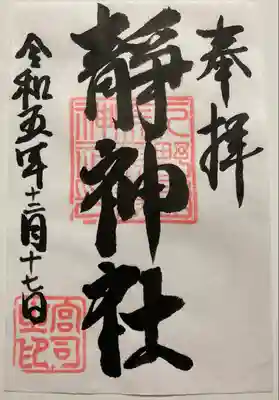 奉拝
靜神社
令和五年十二月十七日
宮司之印